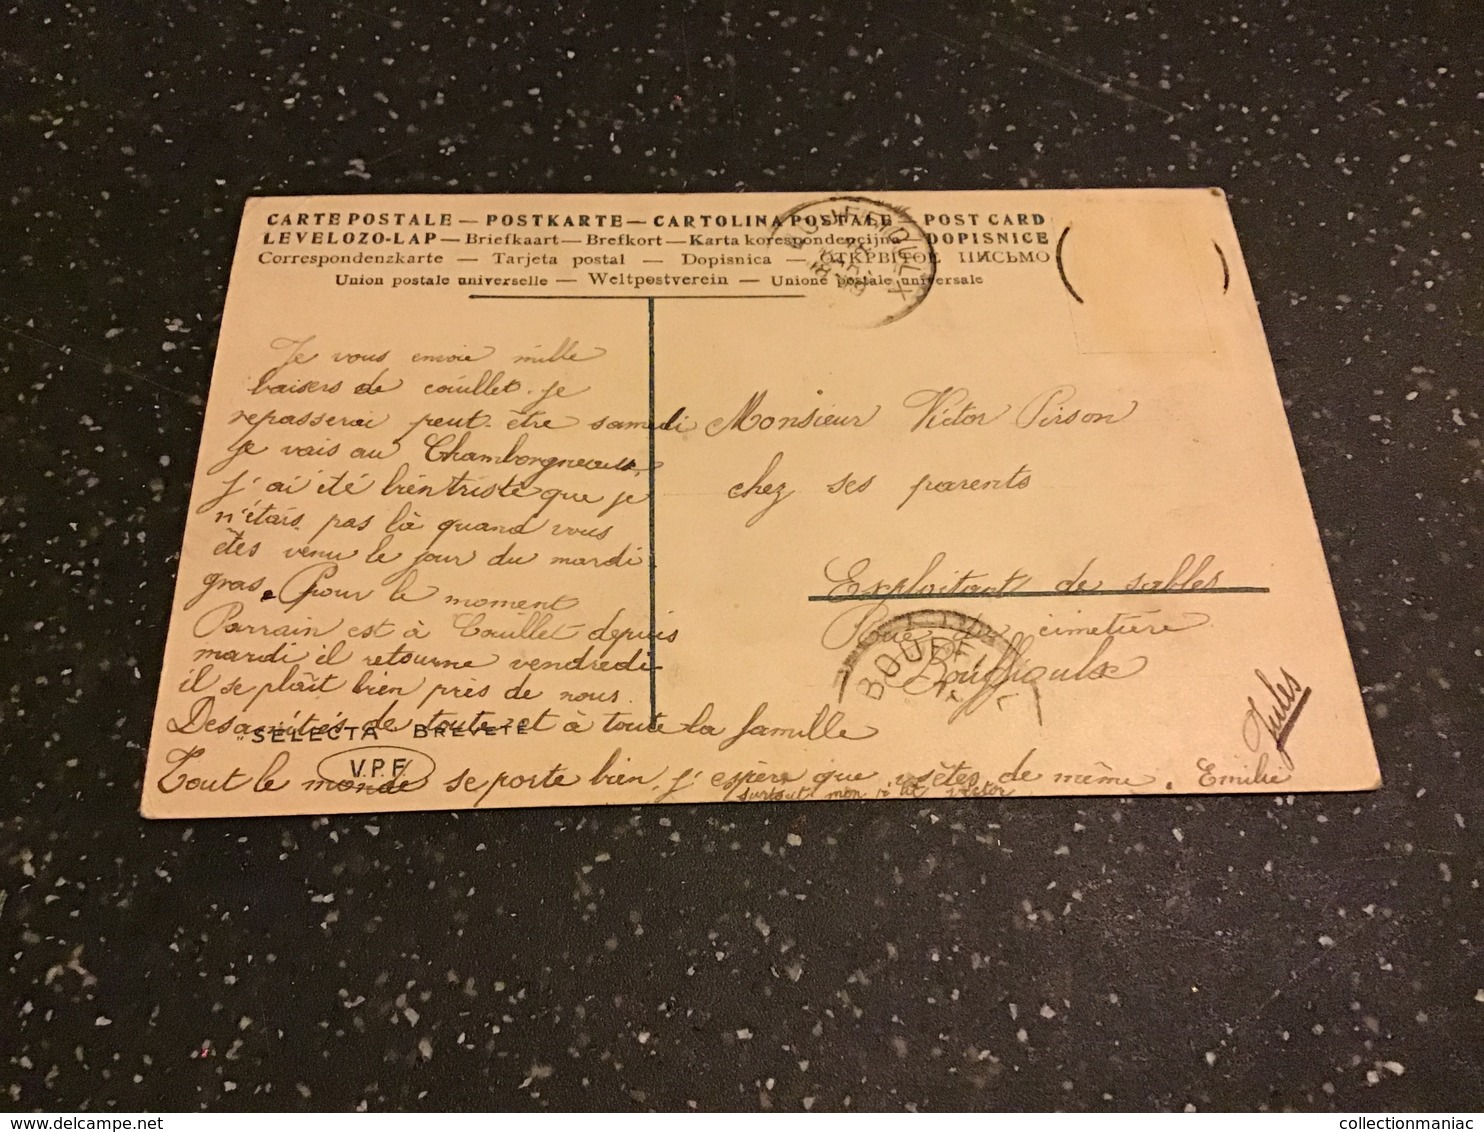 CARTE POSTALE — POSTKARTE — CARTOLINA POSTALE — POST CARD
LEVELOZO-LAP — Briefkaart — Brefkort — Karta korespondencijna — DOPISNICE
Correspondenzkarte — Tarjeta postal — Dopisnica — ОТКРВІТОЕ ПИСЬМО
Union postale universelle — Weltpostverein — Unione postale universale
Je vous envoie mille
baisers de couillet. je
repasserai peut être samedi
je vais au
j'ai été bien triste que je
n'étais pas là quand vous
êtes venu le jour du mardi
gras. Pour le moment
Parrain est à Couillet depuis
mardi il retourne vendredi
il se plaît bien près de nous.
Des amitiés de toute et à toute la famille
Tout le monde se porte bien, j'espère que v. êtes de même. Emilie
surtout mon Victor
Monsieur Victor Pirson
chez ses parents
Exploitant de sables
Rue du cimetière
Bouffioulx
Jules
"SELECTA" BREVETE
V.P.F.
BOUFFIOULX
BOUFF
collectionmaniac
delcampe.net